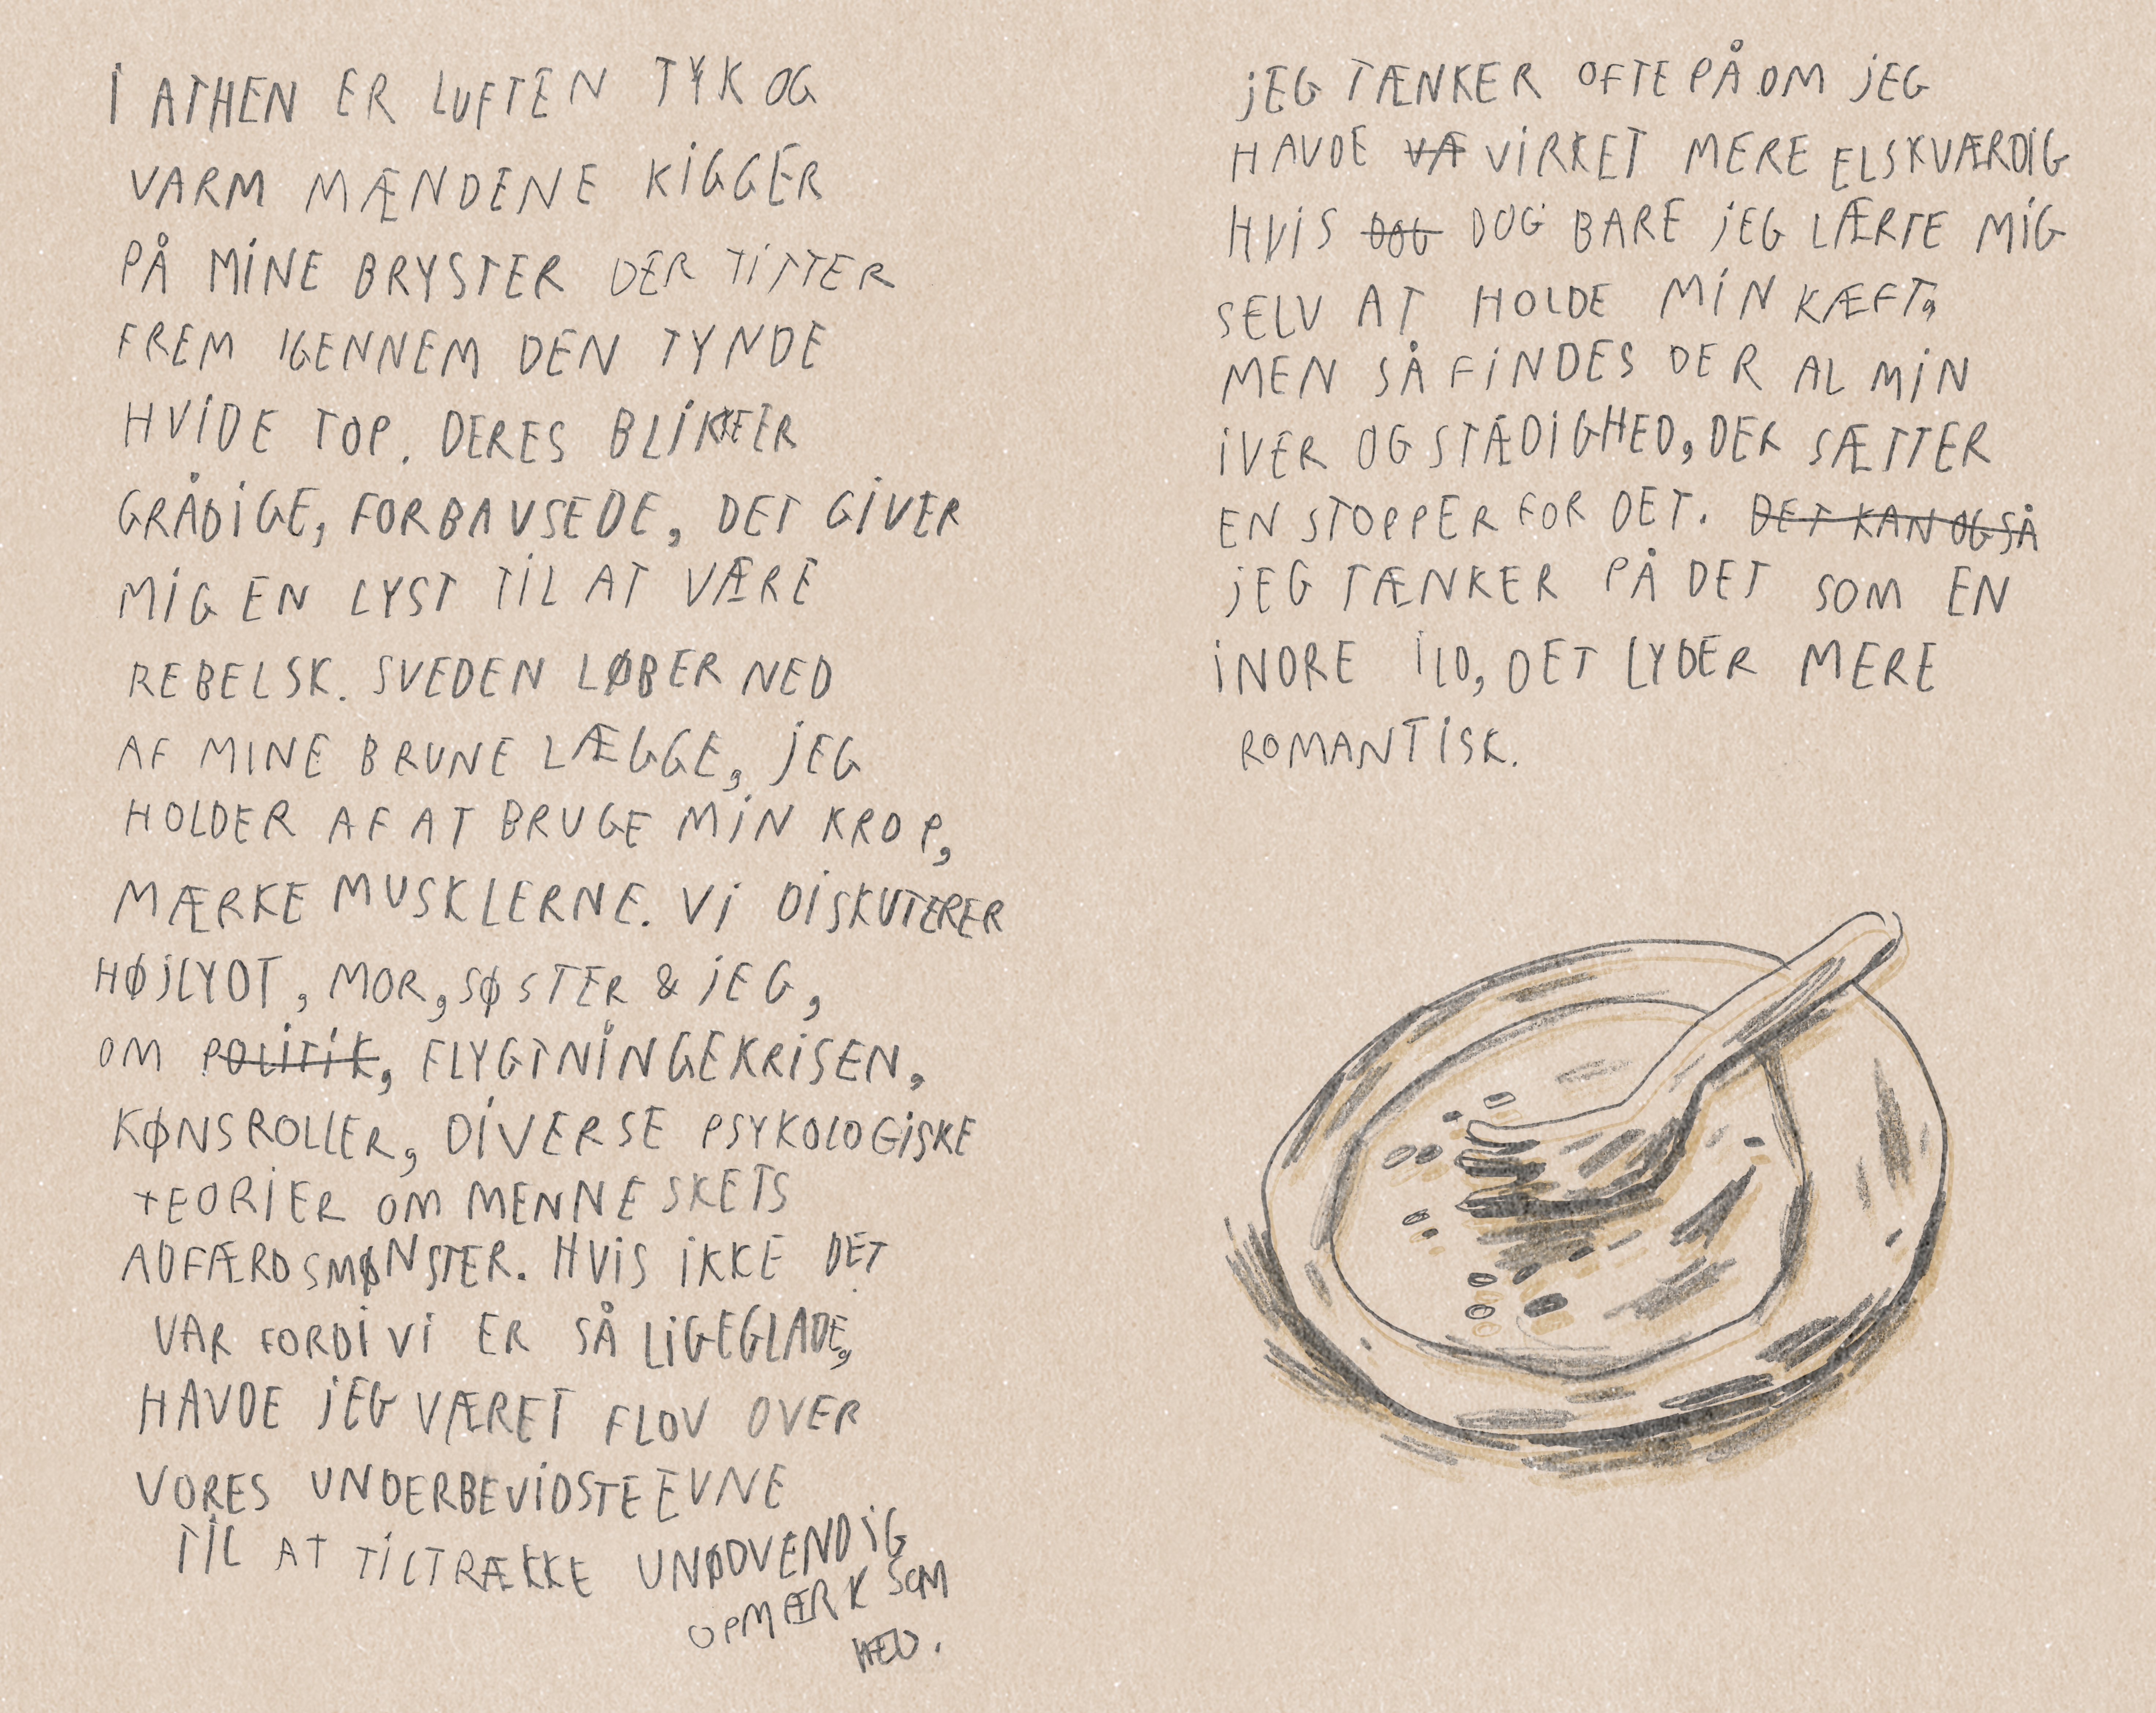 I ATHEN ER LUFTEN TYK OG
VARM MÆNDENE KIGGER
PÅ MINE BRYSTER DER TITTER
FREM IGENNEM DEN TYNDE
HVIDE TOP. DERES BLIKKE ER
GRÅDIGE, FORBAVSEDE, DET GIVER
MIG EN LYST TIL AT VÆRE
REBELSK. SVEDEN LØBER NED
AF MINE BRUNE LÆGGE, JEG
HOLDER AF AT BRUGE MIN KROP,
MÆRKE MUSKLERNE. VI DISKUTERER
HØJLYDT, MOR, SØSTER & JEG,
OM POLITIK, FLYGTNINGEKRISEN,
KØNSROLLER, DIVERSE PSYKOLOGISKE
TEORIER OM MENNESKETS
ADFÆRDSMØNSTER. HVIS IKKE DET
VAR FORDI VI ER SÅ LIGEGLADE,
HAVDE JEG VÆRET FLOV OVER
VORES UNDERBEVIDSTE EVNE
TIL AT TILTRÆKKE UNØDVENDIG
OPMÆRKSOM
HED.
JEG TÆNKER OFTE PÅ OM JEG
HAVDE VÆ VIRKET MERE ELSKVÆRDIG
HVIS DOG DOG BARE JEG LÆRTE MIG
SELV AT HOLDE MIN KÆFT,
MEN SÅ FINDES DER AL MIN
IVER OG STÆDIGHED, DER SÆTTER
EN STOPPER FOR DET. DET KAN OGSÅ
JEG TÆNKER PÅ DET SOM EN
INDRE ILD, DET LYDER MERE
ROMANTISK.